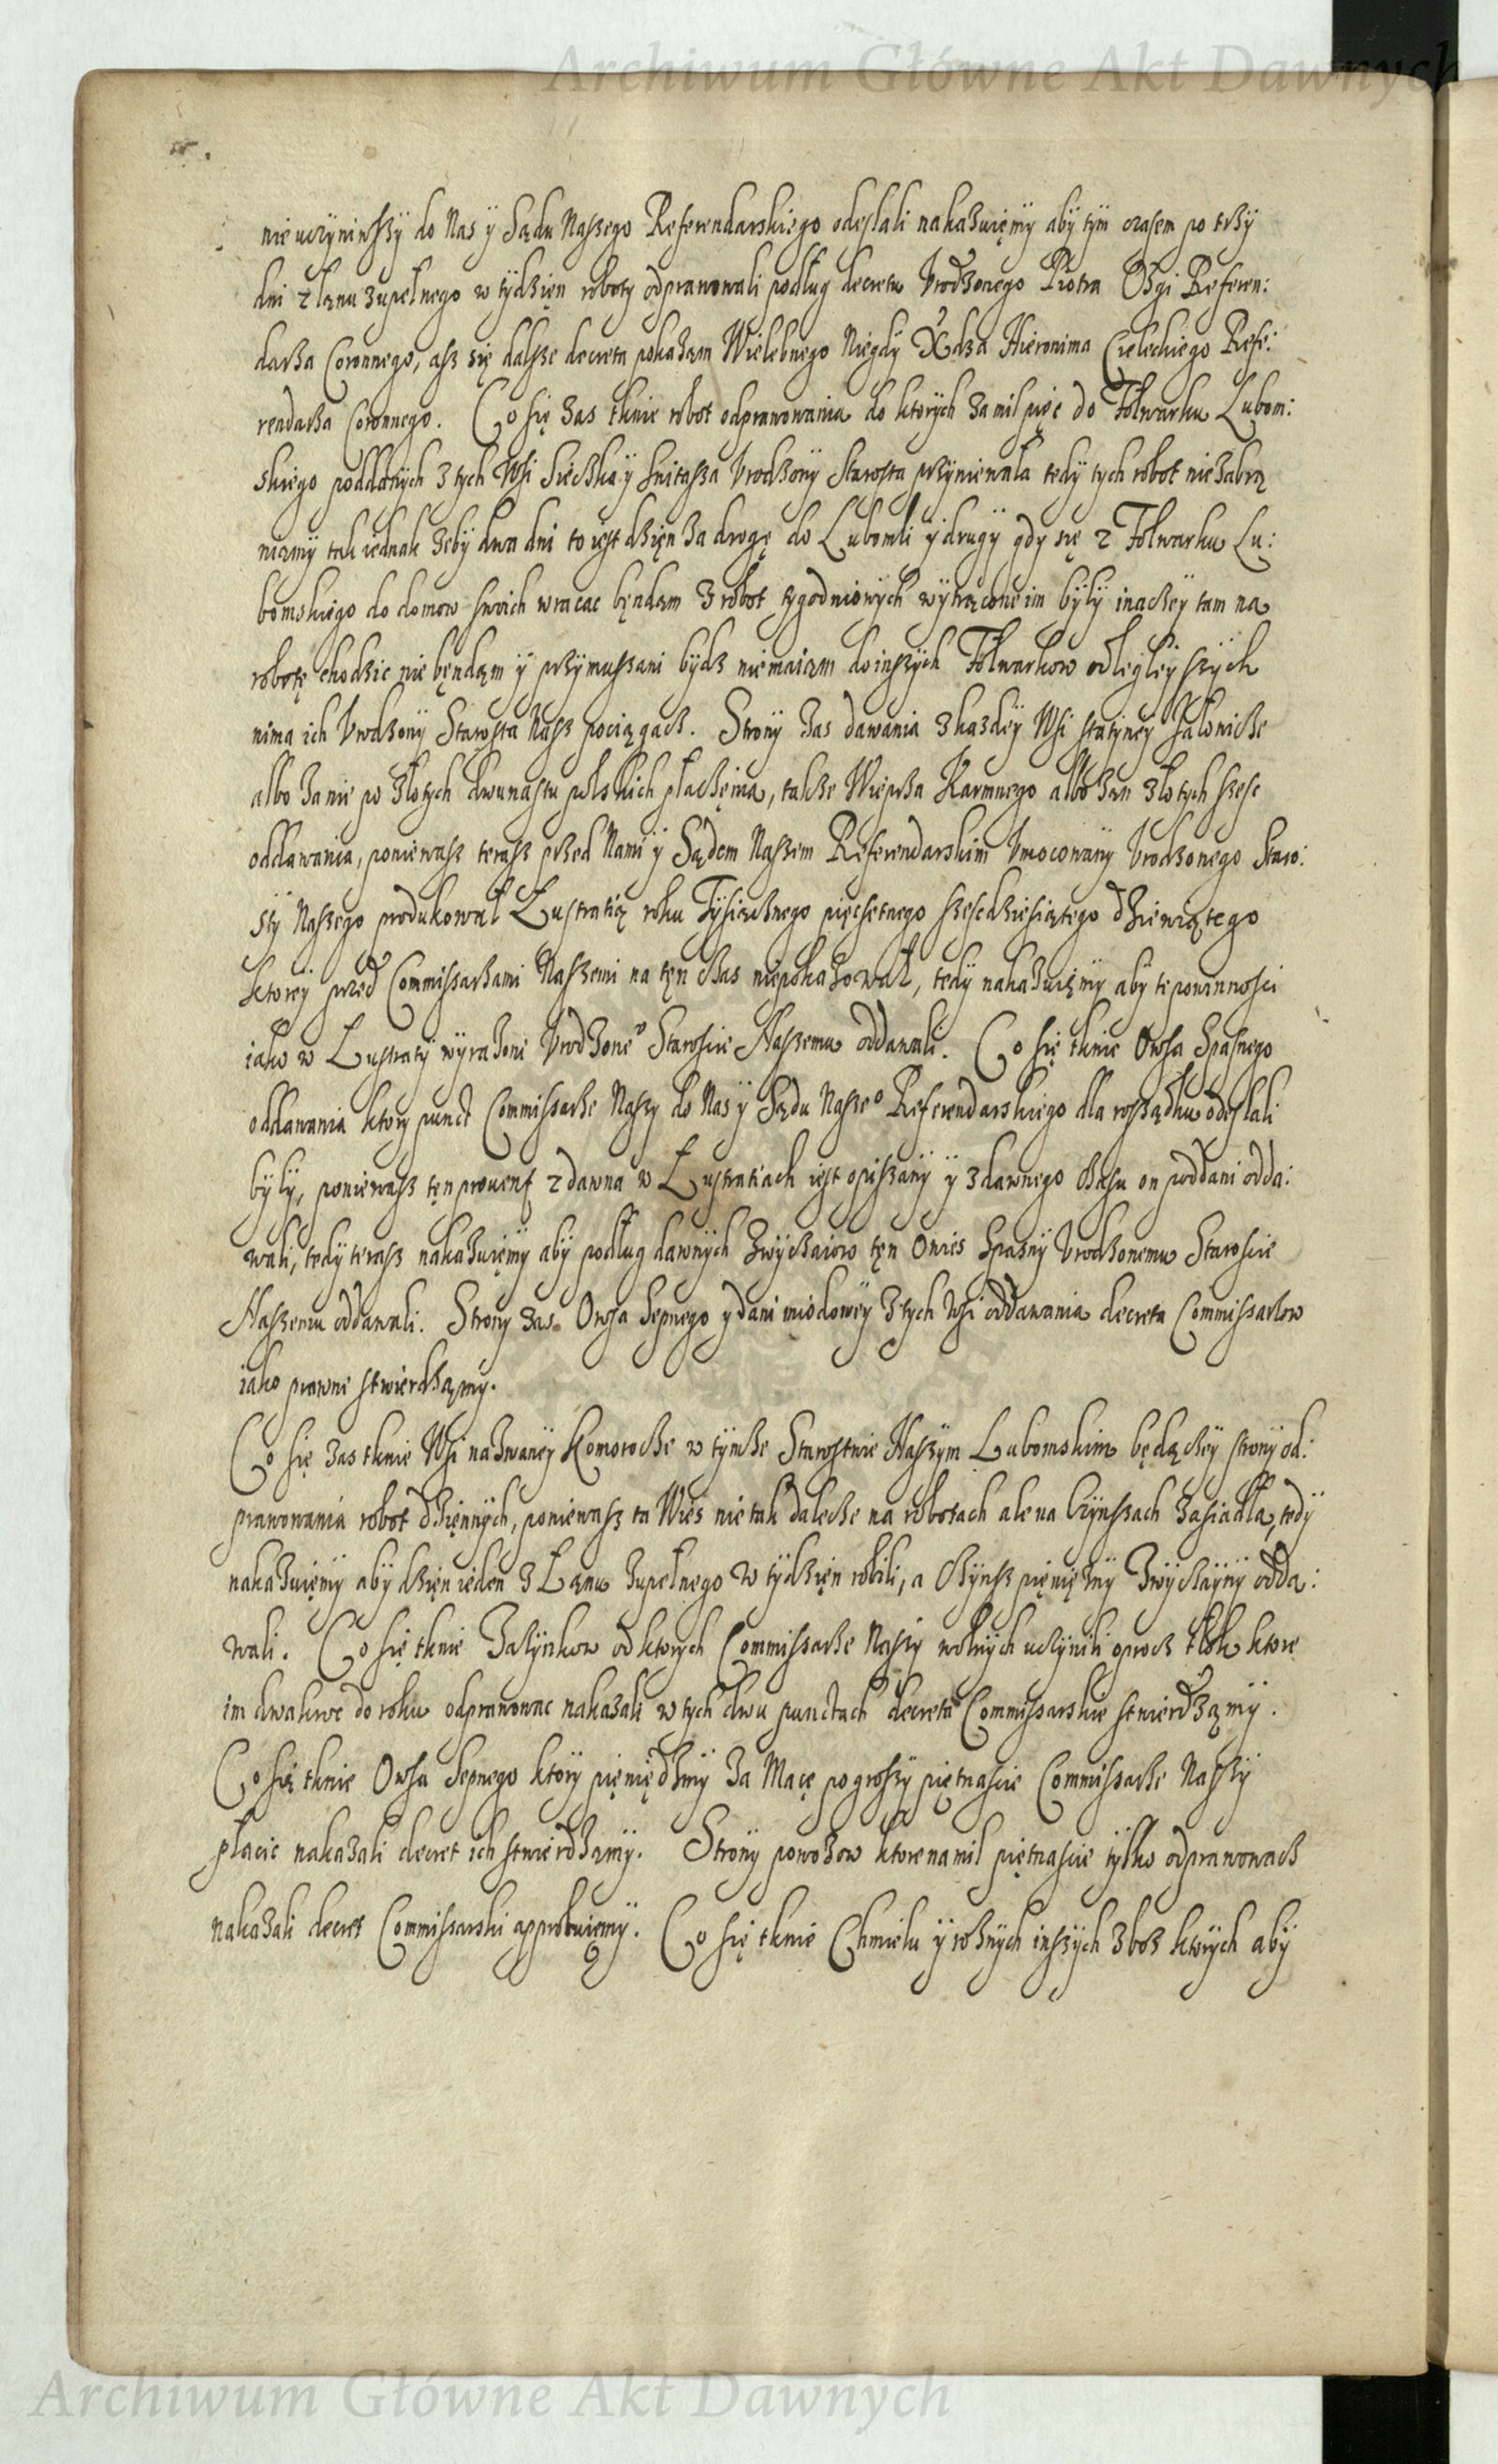 Archiwum Główne Akt Dawnych
nie uczyniwszÿ do Nas ÿ Sądu Naszego Referendarskiego odesłali nakazuięmÿ abÿ tÿm czasem po trzÿ
dni z łanu zupełnego w tÿdzięn robotÿ odprawowali podług decretu Vrodzonego Piotra Ozgi Referen:
darza Coronnego, asz się dalsze decreta pokażąm Wielebnego Niegdÿ Xdza Hieronima Cieleckiego Refe:
rendarza Coronnego. Co się zas tknie robot odprawowania do ktorÿch za mil pięc do Folwarku Lubom:
skiego poddanÿch z tych Wsi Vrodzonÿ Starosta przÿniewalał tedÿ tÿch robot niezabra
niamÿ tak iednak żebÿ dwa dni to iest dzięn za drogę do Lubomli ÿ drugÿ gdÿ się z Folwarku Lu:
bomskiego do domow swoich wracac bęndąm z robot tygodniowÿch wÿtrącone im bÿłÿ inaczeÿ tam na
robotę chodzic nie bęndąm ÿ przÿmuszani bÿdz niemaiąm do inszÿch Folwarkow odległeÿszÿch
nima ich Vrodzonÿ Starosta Nasz pociągacz. Stronÿ zas dawania z kazdeÿ Wsi Jałowicze
albo za nie po złotÿch dwunastu polskich płaczęnia, takze Wieprza Karmnego albo zan złotych szesc
oddawania, poniewasz terasz przed Nami ÿ Sądem Naszem Referendarskim Vmocowanÿ Vrodzonego Staro:
stÿ Naszego produkował Lustratią roku Tÿsiącznego pięcsetnego szescdziesiątego dziewiątego
ktoreÿ przed Commissarzami Naszemi na tęn czas niepokazował, tedÿ nakazuięmÿ abÿ te powinnosci
iako w Lustratÿ wÿrazone Vrodzone° Staroscie Naszemu oddawali. Co się tknie Owsa Spasnego
oddawania ktorÿ punct Commissarze Naszÿ do Nas ÿ Sądu Nasze° Referendarskiego dla rossądku odesłali
bÿlÿ, poniewasz tęn prouent z dawna w Lustratiach iest opiszanÿ ÿ z dawnego czasu on poddani odda:
wali, tedÿ terasz nakazuięmÿ abÿ podług dawnÿch zwÿczaiow tęn Owies Spasnÿ Vrodzonemu Staroscie
Naszemu oddawali. Stronÿ zas Owsa Sepnego ÿ dani miodoweÿ z tÿch Wsi oddawania decreta Commissarzow
iako prawne stwierdzamÿ.
Co się zas tknie Wsi nazwaneÿ Komorocze w tÿmze Starostwie Naszÿm Lubomskim będączeÿ stronÿ od:
prawowania robot dzięnnÿch, poniewasz ta Wies nie tak dalecze na robotach ale na Czÿnszach zasiadła, tedÿ
nakazuięmÿ abÿ dzięn ieden z Łanu zupełnego w tÿdzięn robili, a Czÿnsz pięnięznÿ Zwÿczaÿnÿ odda:
wali. Co się tknie Zazÿnkow od ktorych Commissarze Naszÿ wolnÿch uczÿnili oprocz tłok ktore
im dwakroc do roku odprawowac nakazali w tÿch dwu punctach decreta Commissarskie stwierdzamÿ.
Co się tknie Owsa Sepnego ktorÿ pięniędzmÿ za Macę po groszÿ piętnascie Commissarze Naszÿ
płacic nakazali decret ich stwierdzamÿ. Stronÿ powozow ktore na mil piętnascie tÿlko odprawowacz
nakazali decret Commissarski approbuięmÿ. Co się tknie Chmielu ÿ roznÿch inszÿch zboz ktorÿch abÿ
Archiwum Główne Akt Dawnych